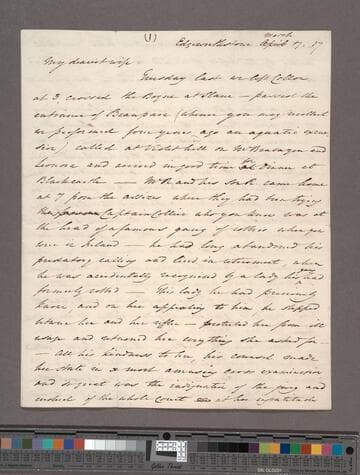 (1)
March
Edgeworthstown April 17. 57
My dearest wife
Tuesday last we left Collon
at 3 crossed the Boyne at Slane – passed the
entrance of Beauparc (where you may recollect
we performed four years ago an aquatic excur
sion) called at Violet hill on Mr
Leonora and arrived in good time to Dinner at
Black castle — Mr R and his Son R came home
at 7 from the assizes where they had been trying
the famous Captain Collier who you know was at
the head of a famous gang of robbers when you
were in Ireland – he had long abandoned his
predatory calling and lived in retirement, when
he was accidentally recognized by a lady he had
formerly robbed — This lady he had previously
known, and on her appealing to him he stepped
between her and the rifler – protected her from ill
usage and returned her everything she asked for –
– All his kindness to her, his counsel made
her state in a most amusing cross examination
and so great was the indignation of the jury and
indeed of the whole Court at her ingratitude
Golden Thread